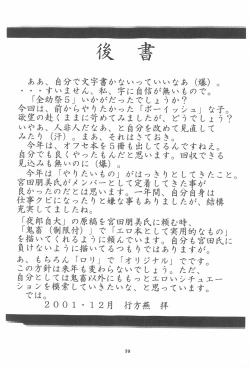 後書
ああ、自分で文字書かないっていいなあ（爆）。
・・・すいません、私、字に自信が無いもので。
「全幼祭５」いかがだったでしょうか？
今回は、前からやりたかった「ボーイッシュ」な子。
欲望の赴くままに苛めてみましたが、どうでしょう？
いやあ、人非人だなあ、と自分を改めて見直して
みたり（汗）。まあ、それはさておき。
今年は、オフセ本を５冊も出してるんですねえ。
自分でも良くやったもんだと思います。回収できる
見込みも無いのに（爆）。
今年は「やりたいもの」がはっきりとしてきたこと。
宮田朋美氏がメンバーとして定着してきた事が
良かったのだとは思います。一年間、自分自身は
仕事クビになったりと嫌な事もありましたが、結構
充実してましたね。
「夜郎自大」の原稿を宮田朋美氏に頼む時、
「鬼畜（制限付）」で「エロ本として実用的なもの」
を描いてくれるように頼んでいます。自分も宮田氏に
負けないように描いてるつもりではありますが。
あ、もちろん「ロリ」で「オリジナル」でです。
この方針は来年も変わらないでしょう。ただ、
自分としては鬼畜以外にももっとエロいシチュエー
ションを模索していきたいな、と思っています。
では。
２００１・１２月　行方燕　拝